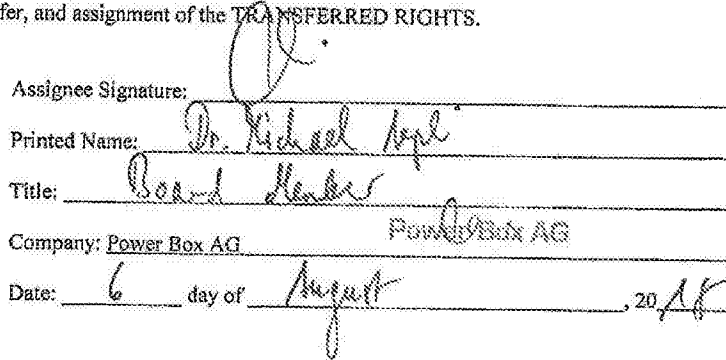 fer, and assignment of the TRANSFERRED RIGHTS.
Assignee Signature:
Printed Name: Dr. Michael
Title: Board Member
Company: Power Box AG Power Box AG
Date: 6 day of August, 2018